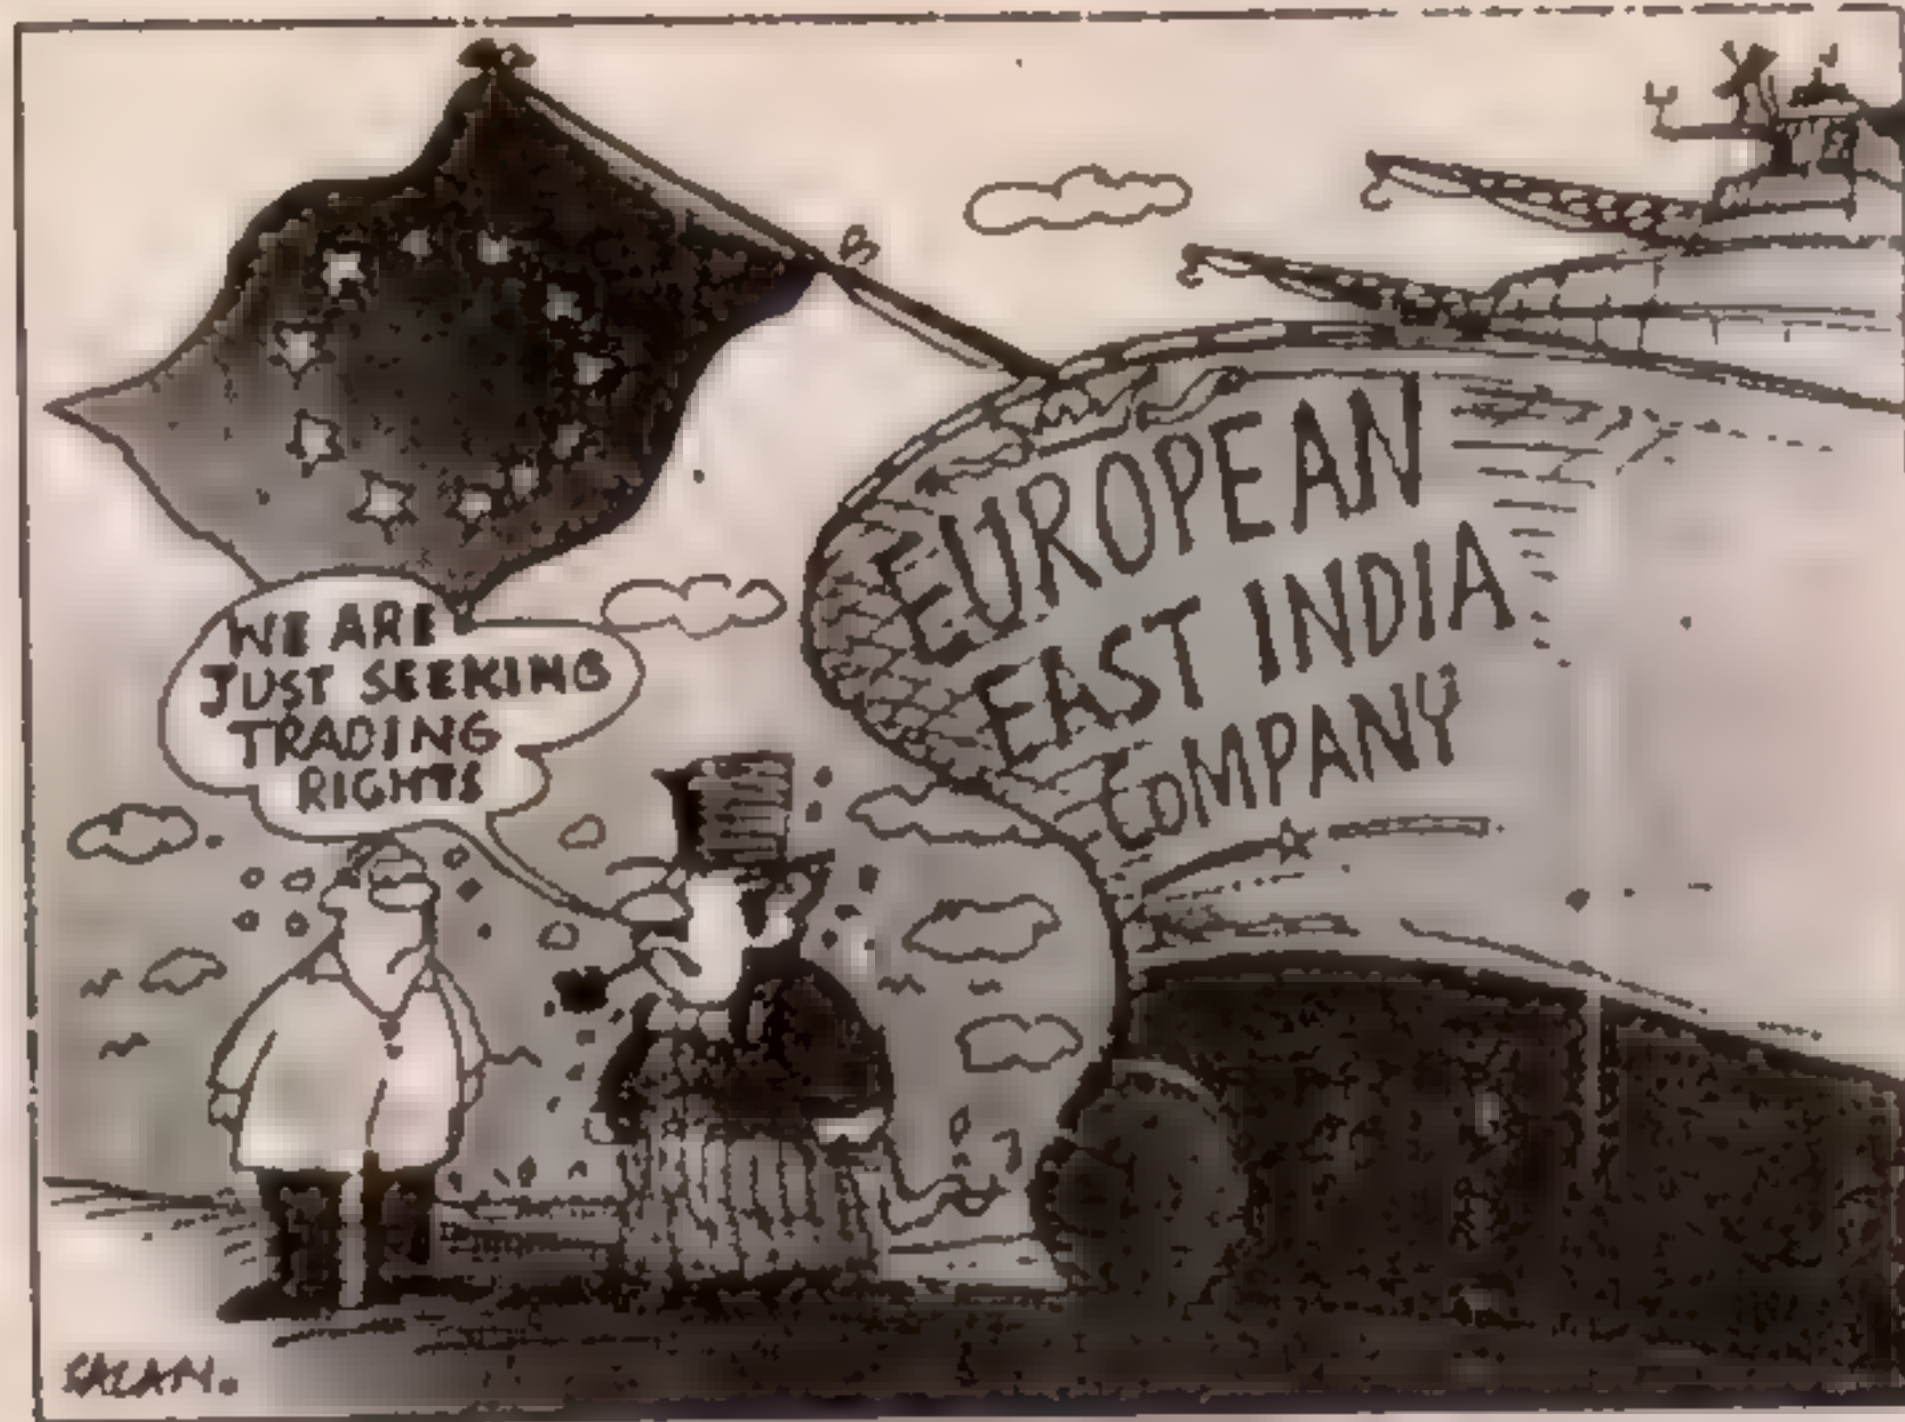 WE ARE
JUST SEEKING
TRADING
RIGHTS
EUROPEAN
EAST INDIA
COMPANY